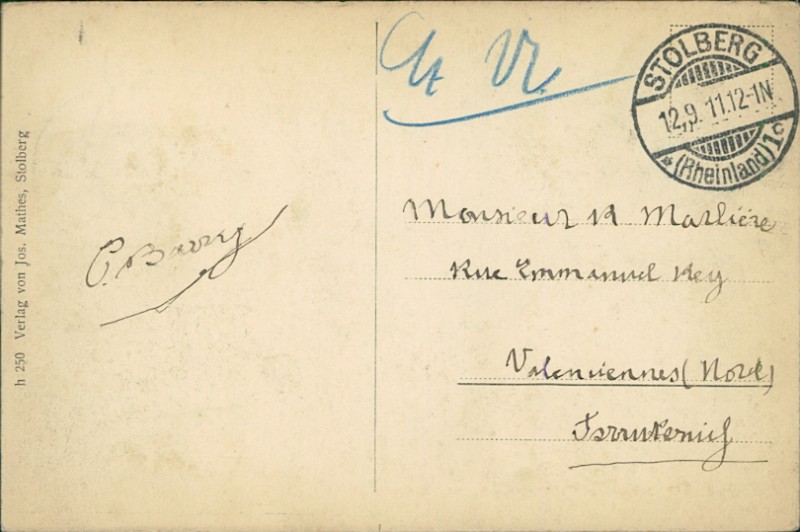 h 250 Verlag von Jos. Mathes, Stolberg
STOLBERG
12.9.11.12-1N
* (Rheinland) 1c
Monsieur R. Marlière
Rue Emmanuel Rey
Valenciennes (Nord)
Frankreich